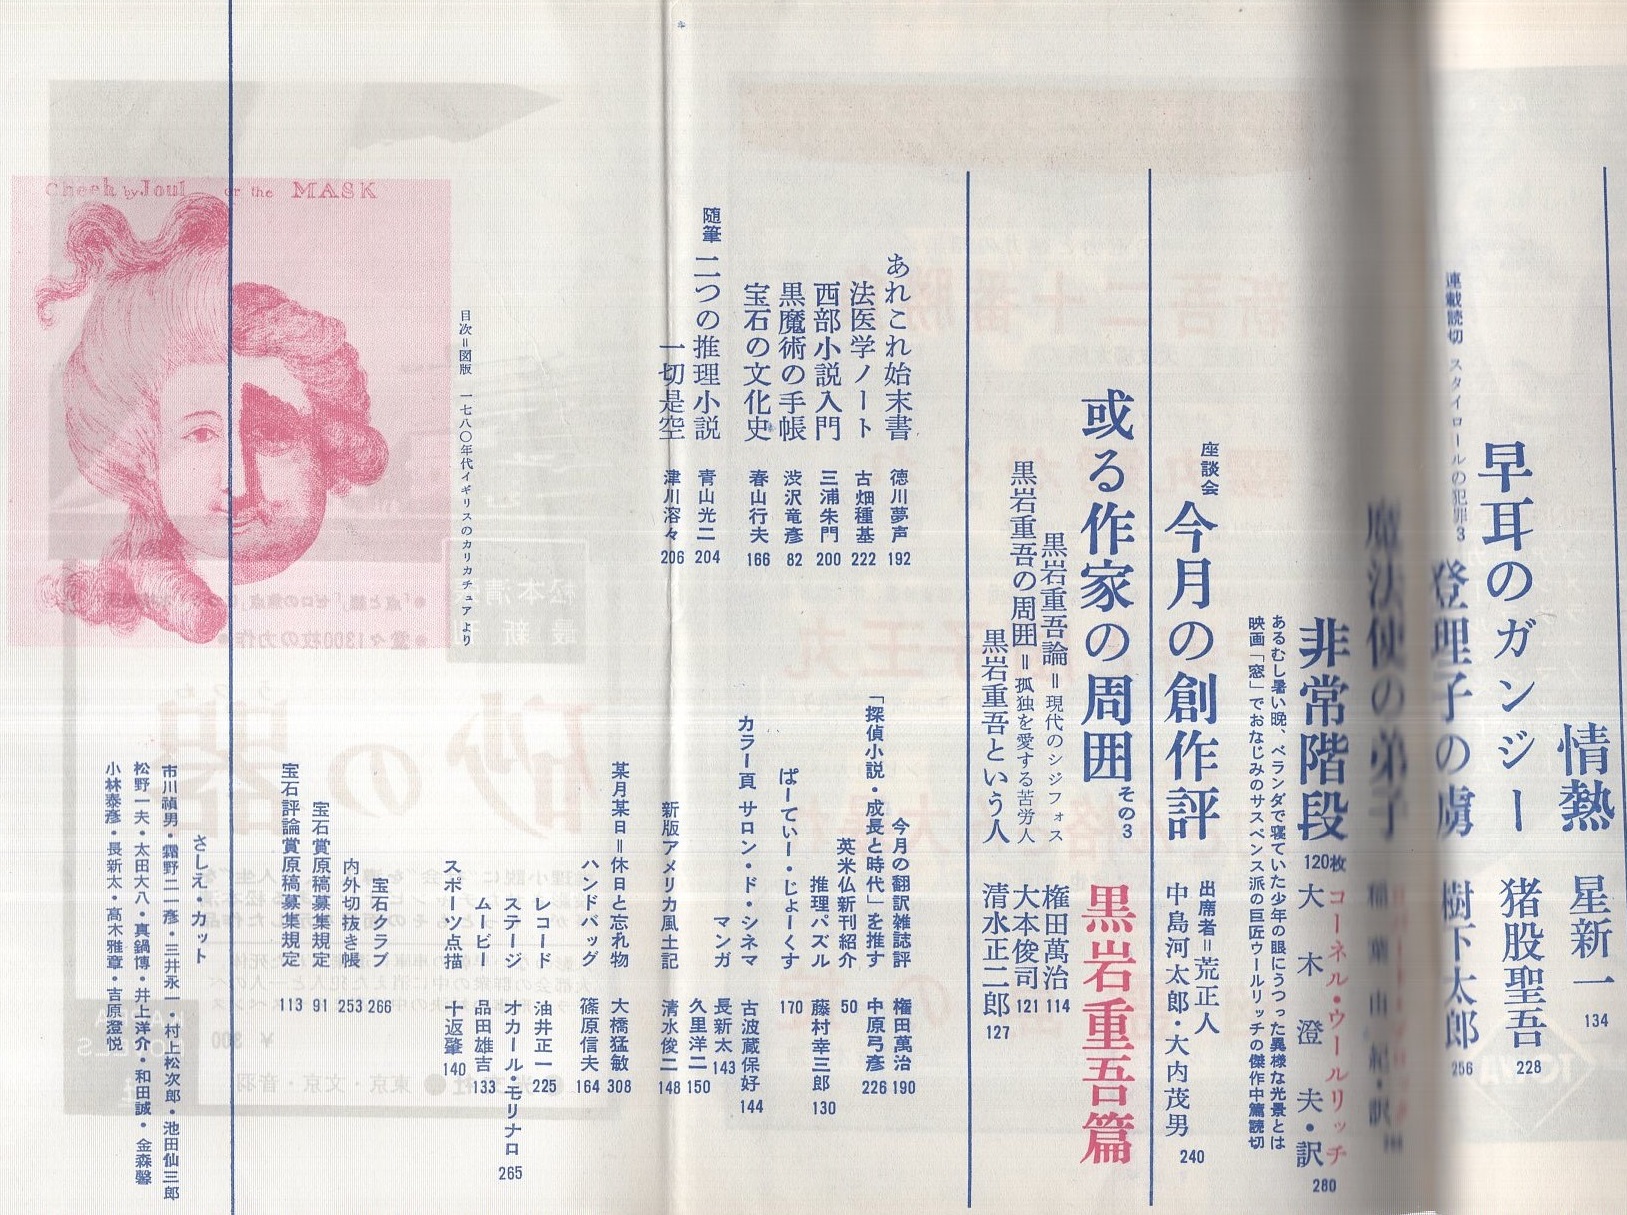 情熱 星新一 134
早耳のガンジー 猪股聖吾 228
連載読切 スタイロールの犯罪3
登理子の虜 樹下太郎 256
魔法使の弟子 稲葉由紀・訳
非常階段 120枚 コーネル・ウールリッチ 大木澄夫・訳 280
あるむし暑い晩、ベランダで寝ていた少年の眼にうつった異様な光景とは
映画「窓」でおなじみのサスペンス派の巨匠ウールリッチの傑作中篇読切
座談会 今月の創作評 出席者=荒正人 中島河太郎・大内茂男 240
或る作家の周囲 その3 黒岩重吾篇
黒岩重吾論=現代のシジフォス 権田萬治 114
黒岩重吾の周囲=孤独を愛する苦労人 大本俊司 121
黒岩重吾という人 清水正二郎 127
あれこれ始末書 徳川夢声 192
法医学ノート 古畑種基 222
西部小説入門 三浦朱門 200
黒魔術の手帳 渋沢竜彦 82
宝石の文化史 春山行夫 166
随筆 二つの推理小説 青山光二 204
一切是空 津川溶々 206
今月の翻訳雑誌評 権田萬治 190
「探偵小説・成長と時代」を推す 中原弓彦 226
英米仏新刊紹介 50
推理パズル 藤村幸三郎 130
ぱーてぃー・じょーくす 170
カラー頁 サロン・ド・シネマ 古波蔵保好 144
マンガ 長新太 143
久里洋二 150
新版アメリカ風土記 清水俊二 148
某月某日=休日と忘れ物 大橋猛敏 308
ハンドバッグ 篠原信夫 164
レコード 油井正一 225
ステージ オカール・モリナロ 265
ムービー 品田雄吉 133
スポーツ点描 十返肇 140
宝石クラブ 266
内外切抜き帳 253
宝石賞原稿募集規定 91
宝石評論賞原稿募集規定 113
さしえ・カット
市川禎男・霜野二一彦・三井永一・村上松次郎・池田仙三郎
松野一夫・太田大八・真鍋博・井上洋介・和田誠・金森馨
小林泰彦・長新太・高木雅章・吉原澄悦
目次=図版 一七八〇年代イギリスのカリカチュアより
Cheek by Joul or the MASK